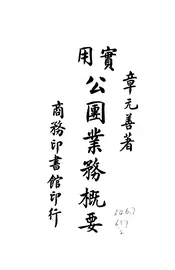 章元善著
實用
公團業務概要
商務印書館印行